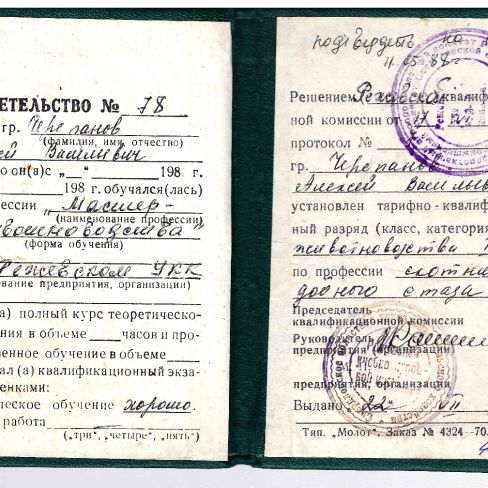 ЕТЕЛЬСТВО № 78
гр. Черепанов
(фамилия, имя, отчество)
ей Васильевич
о он(а) с „__“ 198 г.
198 г. обучался(лась)
ессии „Мастер-
(наименование профессии)
водства"
(форма обучения)
Режевском УКК
ование предприятия, организации)
а) полный курс теоретическо-
ния в объеме ___ часов и про-
венное обучение в объеме
ал (а) квалификационный экза-
енками:
ческое обучение хорошо.
работа
(„три", „четыре", „пять")
подтвердить на
88г
Решением Режевской квалифи
ной комиссии от 17
протокол №
гр. Черепанов
Алексей Василь
установлен тарифно-квалиф
ный разряд (класс, категория
животноводства
по профессии скотни
дойного стада
Председатель
квалификационной комиссии
Руководитель
предприятия (организации
предприятия, организации
Выдано „22" VII
Тип. „Молот". Заказ № 4324—70.